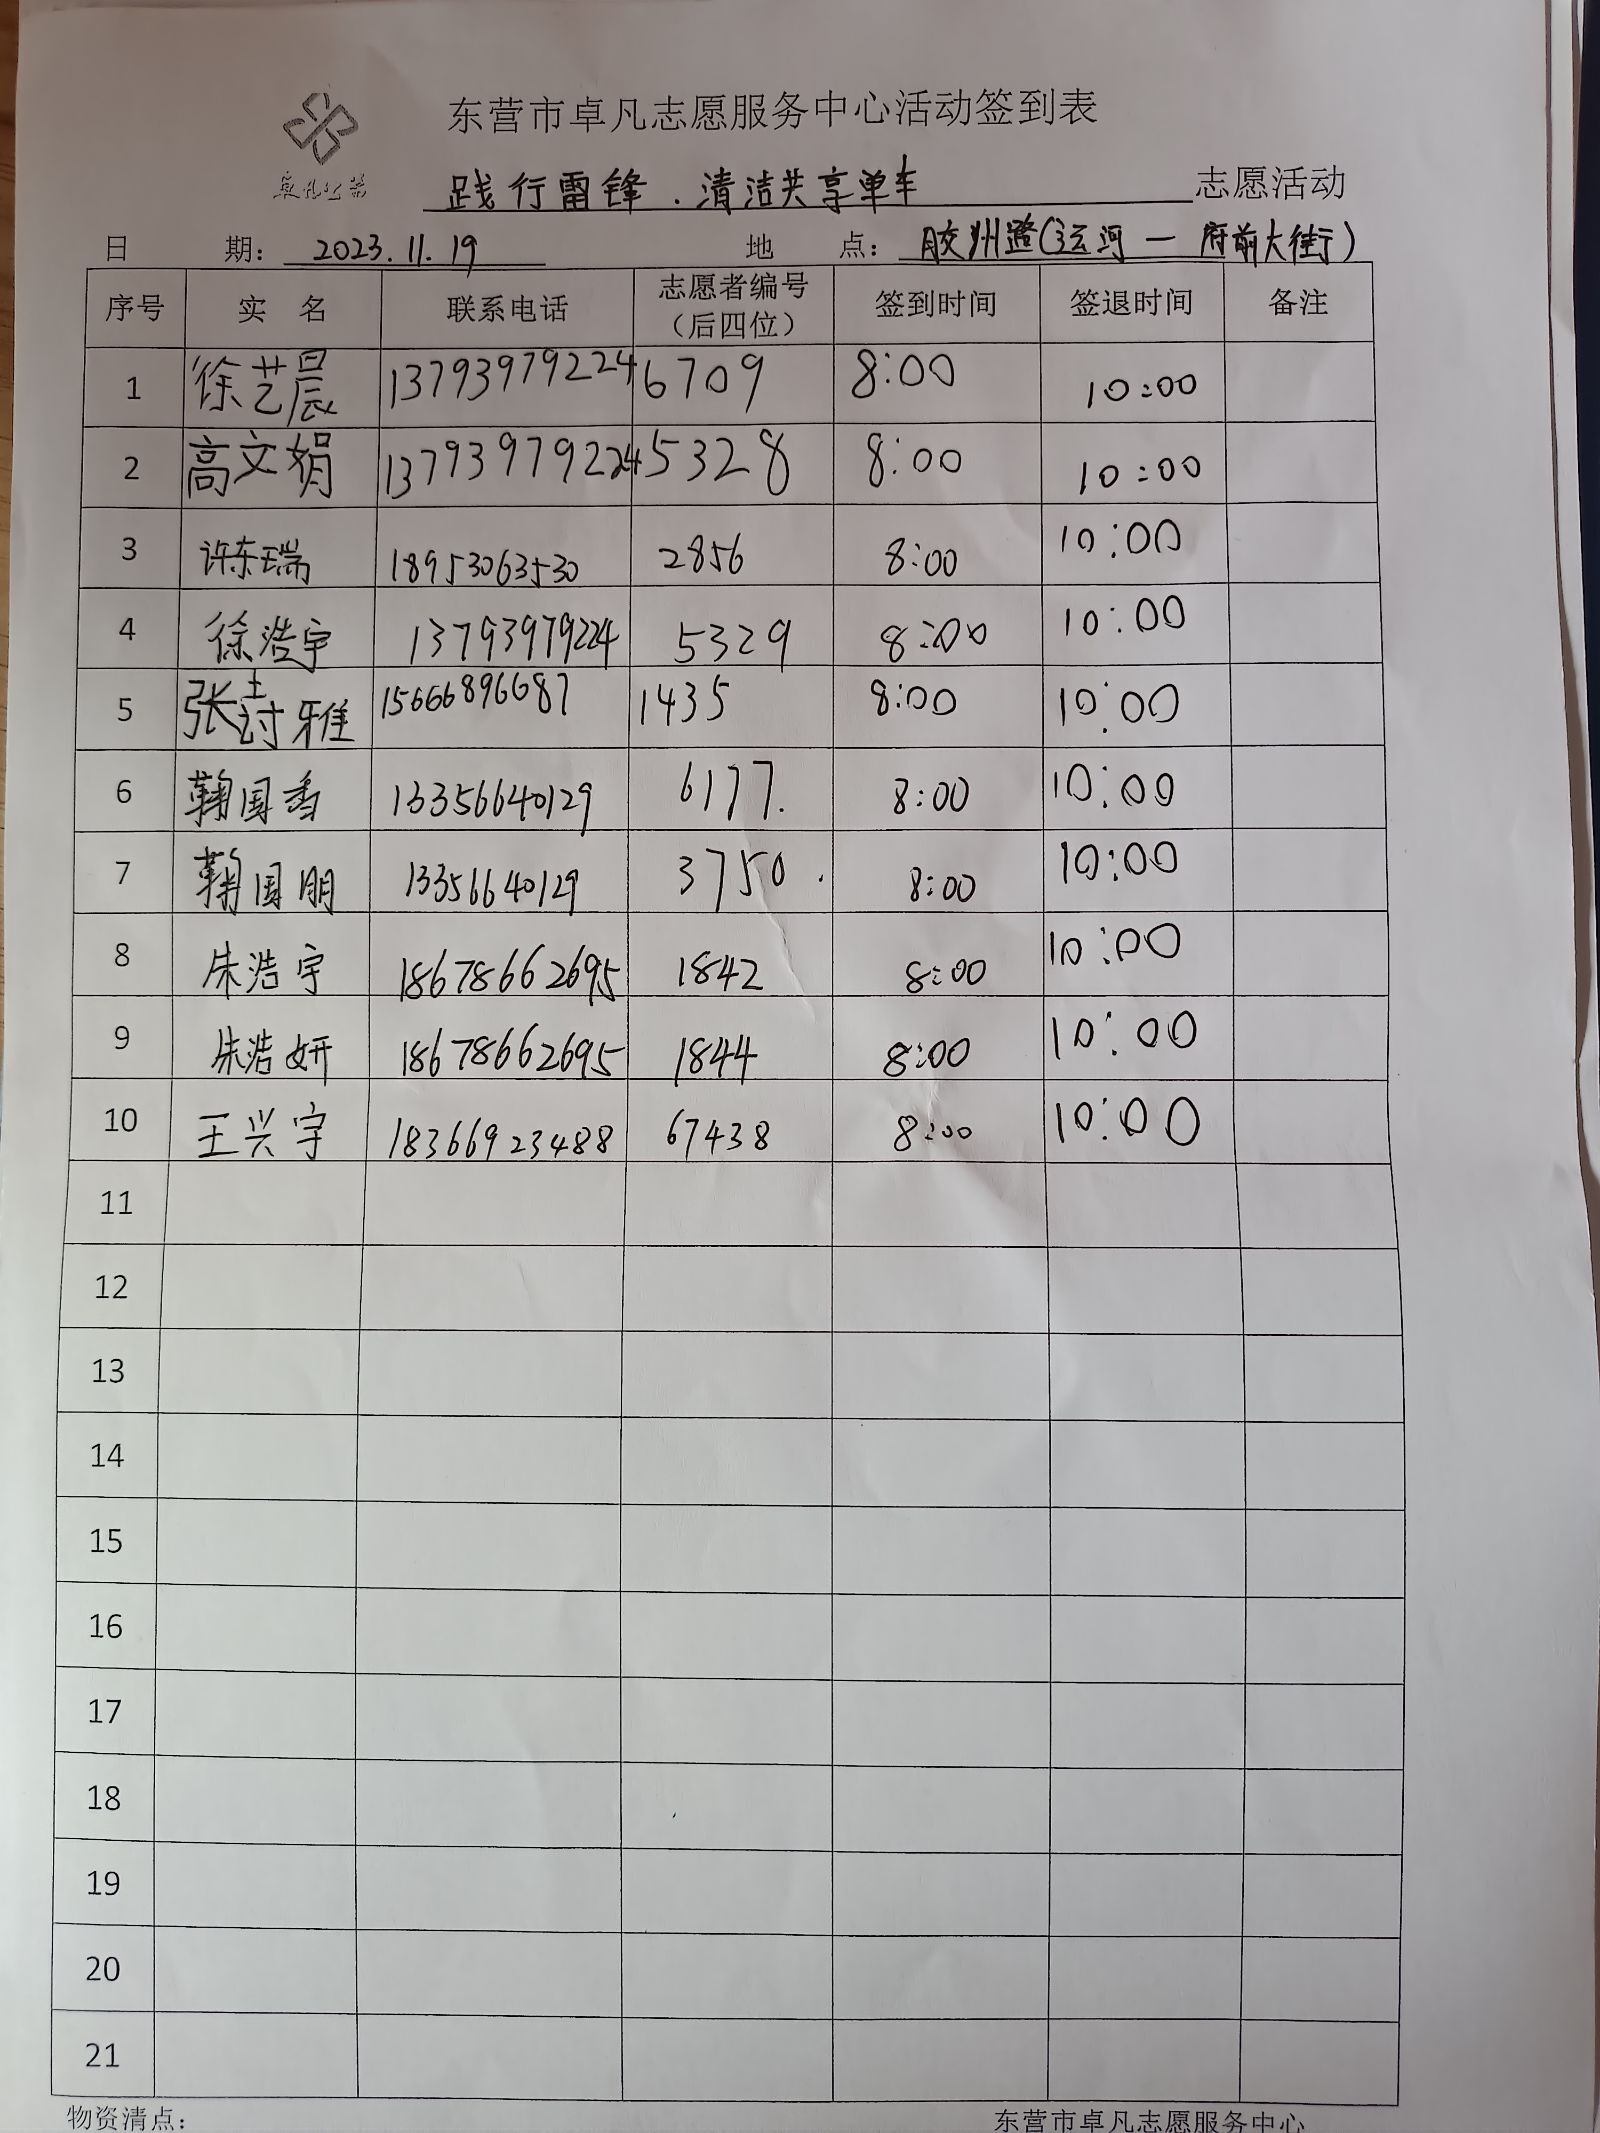 东营市卓凡志愿服务中心活动签到表
卓凡公益
践行雷锋.清洁共享单车 志愿活动
日期: 2023.11.19 地点: 胶州路(运河一府前大街)
序号 实名 联系电话 志愿者编号(后四位) 签到时间 签退时间 备注
1 徐艺晨 13793979224 6709 8:00 10:00
2 高文娟 13793979224 5328 8:00 10:00
3 许东瑞 18953063530 2856 8:00 10:00
4 徐浩宇 13793979224 5329 8:00 10:00
5 张诗雅 15666896687 1435 8:00 10:00
6 鞠国香 13356640129 6177. 8:00 10:00
7 鞠国朋 13356640129 3750. 8:00 10:00
8 朱浩宇 18678662695 1842 8:00 10:00
9 朱浩妍 18678662695 1844 8:00 10:00
10 王兴宇 18366923488 67438 8:00 10:00
11
12
13
14
15
16
17
18
19
20
21
物资清点: 东营市卓凡志愿服务中心